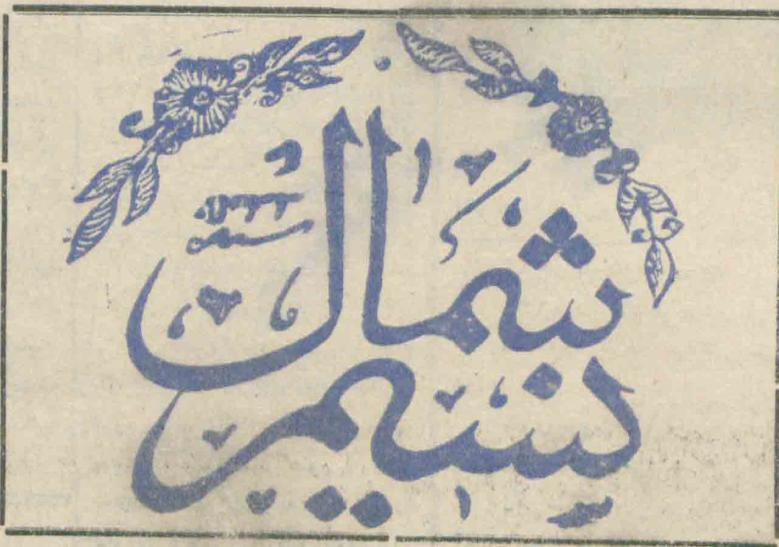 نسیم
شمال